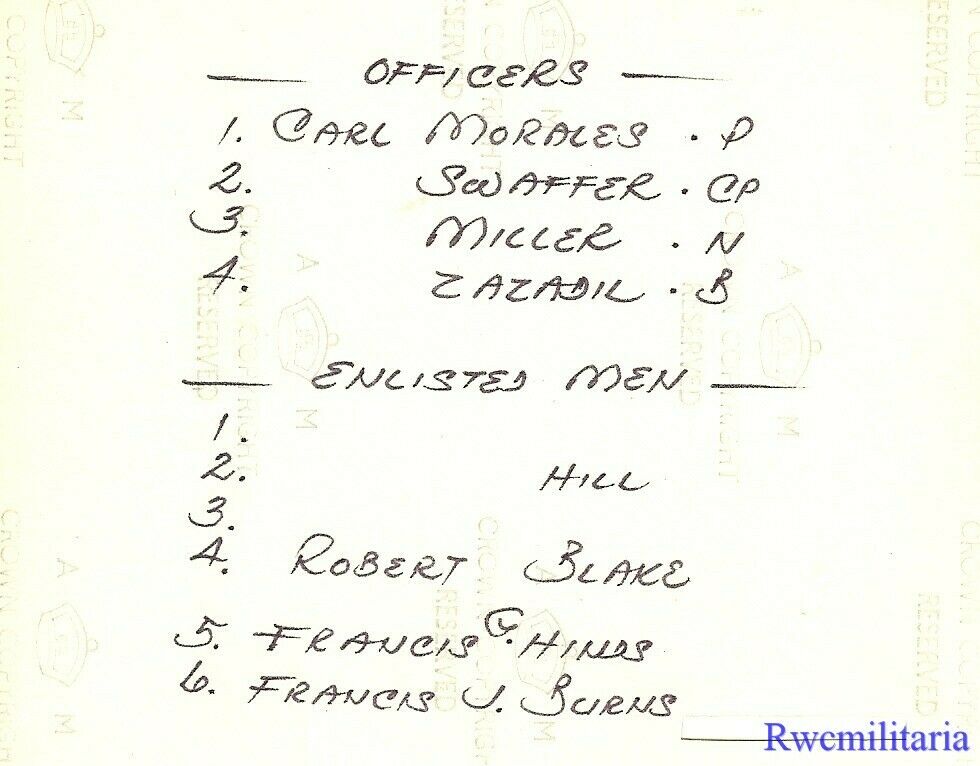 OFFICERS
1. CARL MORALES . P
2. SWAFFER . CP
3. MILLER . N
4. ZAZADIL . B
ENLISTED MEN
1.
2. HILL
3.
4. ROBERT BLAKE
5. FRANCIS G. HINDS
6. FRANCIS J. BURNS
Rwcmilitaria